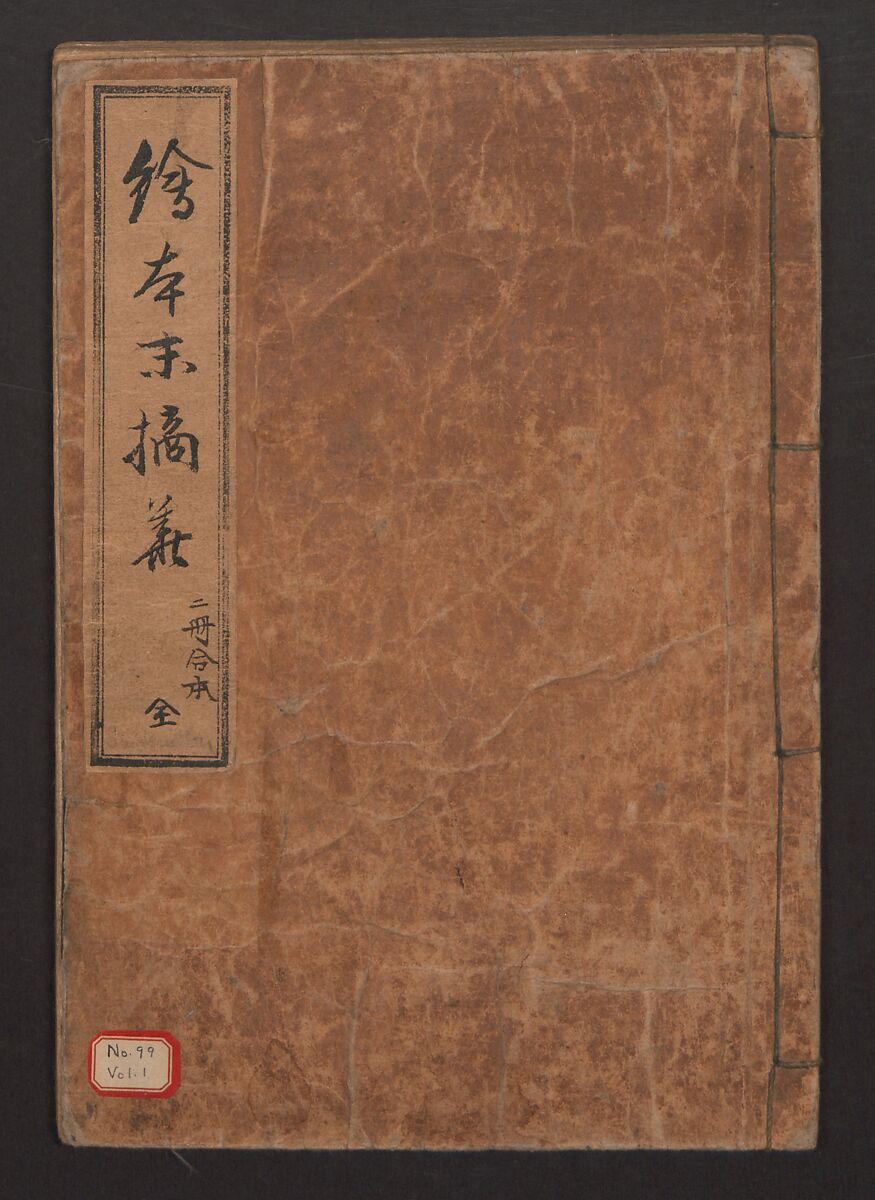 繪本末摘華
二冊合本
全
No. 99
Vol. 1